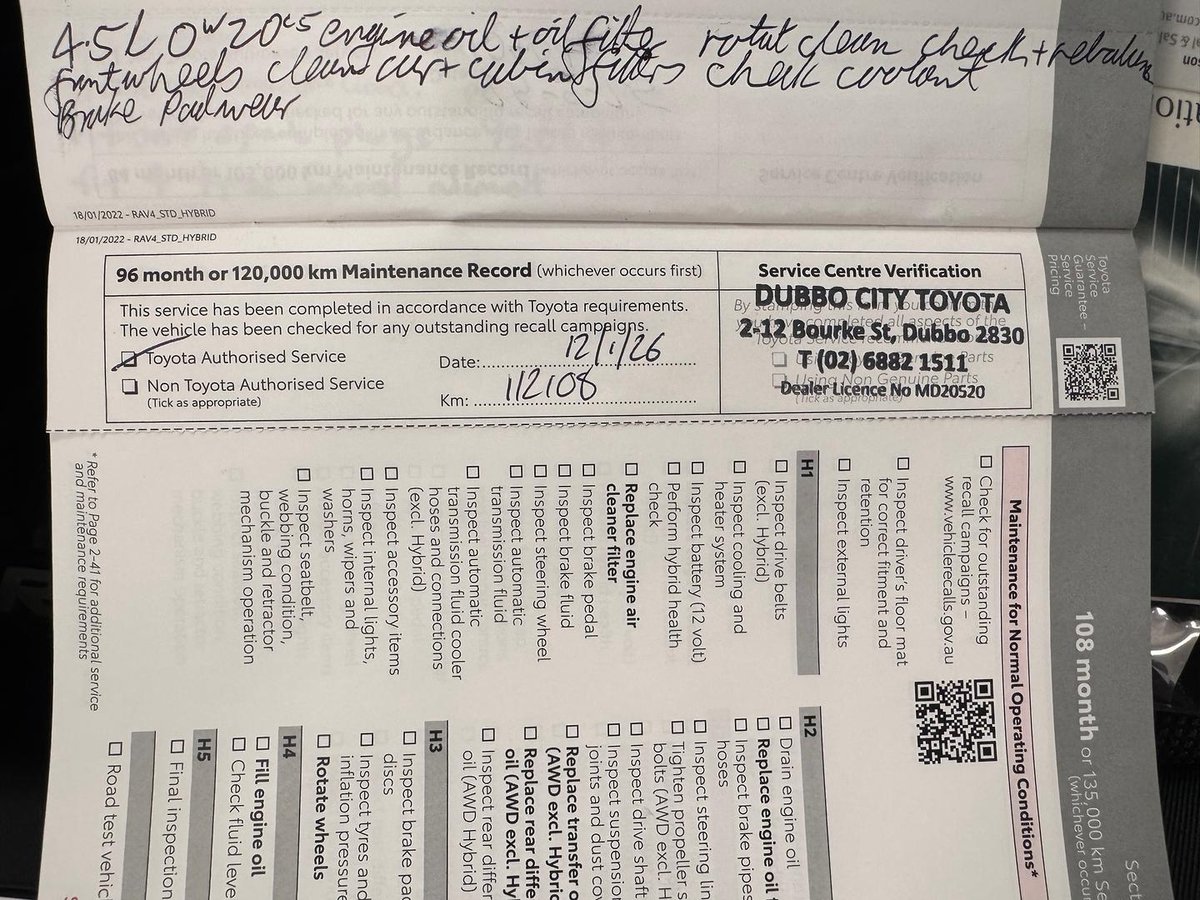 4.5L 0W20 C5 engine oil + oil filter rotat clean check + rebalance
front wheels clean air + cabin filters check coolant
Brake Pad wear
18/01/2022 - RAV4_STD_HYBRID
18/01/2022 - RAV4_STD_HYBRID
96 month or 120,000 km Maintenance Record (whichever occurs first)
This service has been completed in accordance with Toyota requirements.
The vehicle has been checked for any outstanding recall campaigns.
Toyota Authorised Service
Date: 12/1/26
Non Toyota Authorised Service
(Tick as appropriate)
Km: 112108
Service Centre Verification
DUBBO CITY TOYOTA
2-12 Bourke St, Dubbo 2830
T (02) 6882 1511
Dealer Licence No MD20520
Using Non Genuine Parts
(Tick as appropriate)
Toyota
Service
Guarantee –
Service
Pricing
108 month or 135,000 km
(whichever
Maintenance for Normal Operating Conditions*
Check for outstanding
recall campaigns –
www.vehiclerecalls.gov.au
Inspect driver's floor mat
for correct fitment and
retention
Inspect external lights
H1
Inspect drive belts
(excl. Hybrid)
Inspect cooling and
heater system
Inspect battery (12 volt)
Perform hybrid health
check
Replace engine air
cleaner filter
Inspect brake pedal
Inspect brake fluid
Inspect steering wheel
Inspect automatic
transmission fluid
Inspect automatic
transmission fluid cooler
hoses and connections
(excl. Hybrid)
Inspect accessory items
Inspect internal lights,
horns, wipers and
washers
Inspect seatbelt,
webbing condition,
buckle and retractor
mechanism operation
H2
Drain engine oil
Replace engine oil
Inspect brake pipes
hoses
Inspect steering
Tighten propeller
bolts (AWD excl.
Inspect drive shaft
joints and dust
Inspect suspension
Replace transfer
(AWD excl.
Replace rear
oil (AWD excl.
Inspect rear
oil (AWD Hybrid)
H3
Inspect brake
discs
Inspect tyres and
inflation
Rotate wheels
H4
Fill engine oil
Check fluid
H5
Final inspection
Road test
* Refer to Page 2-41 for additional service
and maintenance requirements